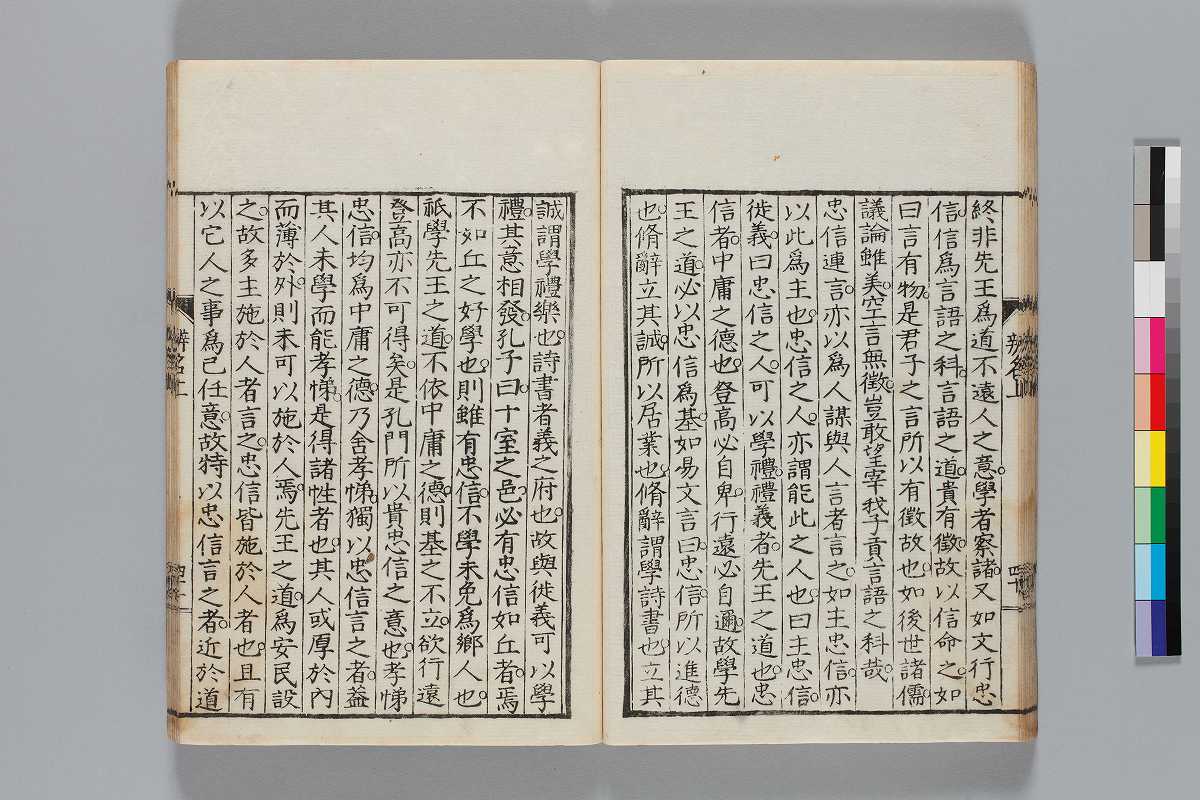 終非先王爲道不遠人之意學者察諸又如文行忠
信信爲言語之科言語之道貴有徵故以信命之如
曰言有物是君子之言所以有徵故也如後世諸儒
議論雖美空言無徵豈敢望宰我子貢言語之科哉
忠信連言亦以爲人謀與人言者言之如主忠信亦
以此爲主也忠信之人亦謂能此之人也曰主忠信
徙義曰忠信之人可以學禮禮義者先王之道也忠
信者中庸之德也登高必自卑行遠必自邇故學先
王之道必以忠信爲基如易文言曰忠信所以進德
也脩辭立其誠所以居業也脩辭謂學詩書也立其
誠謂學禮樂也詩書者義之府也故與徙義可以學
禮其意相發孔子曰十室之邑必有忠信如丘者焉
不如丘之好學也則雖有忠信不學未免爲鄉人也
祇學先王之道不依中庸之德則基之不立欲行遠
登高亦不可得矣是孔門所以貴忠信之意也孝悌
忠信均爲中庸之德乃舍孝悌獨以忠信言之者蓋
其人未學而能孝悌是得諸性者也其人或厚於內
而薄於外則未可以施於人焉先王之道爲安民設
之故多主施於人者言之忠信皆施於人者也且有
以它人之事爲己任意故特以忠信言之者近於道
辨名上
四十
辨名上